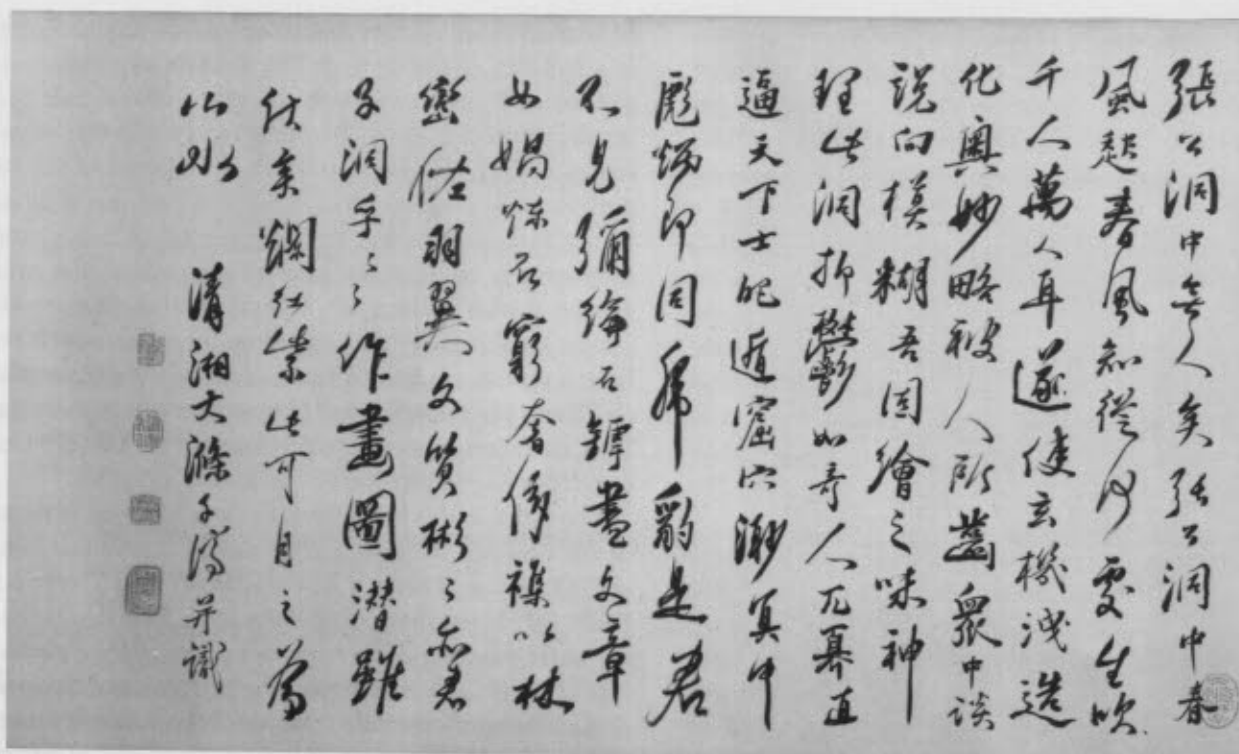 張公洞中無人矣張公洞中春
風起春風知從何處生吹
千人萬人耳遂使玄機洩造
化奧妙略被人所齒眾中談
說向模糊吾圖繪之味神
理此洞抑鬱如奇人兀冪直
逼天下士肥遁窟穴渺冥中
彪炳即同虎豹是君
不見彌綸石罅盡文章
女媧煉石窮奢侈襍以林
巒佐羽翼文質彬彬亦君
子洞乎洞乎作畫圖潛雖
伏矣爛紅紫此可目之為
山水
清湘大滌子濟并識